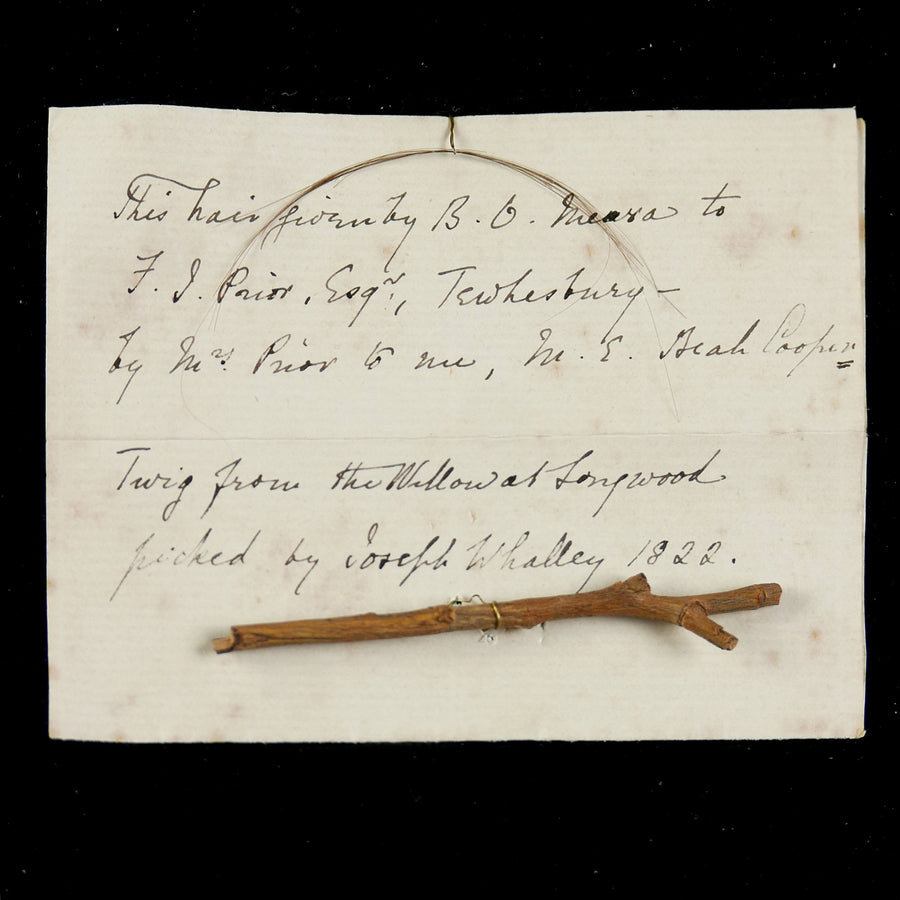 This hair given by B. O. Meara to
F. J. Prior, Esqr, Tewkesbury—
by Mrs. Prior to me, M. E. Beale Cooper
Twig from the Willow at Longwood
picked by Joseph Whalley 1822.